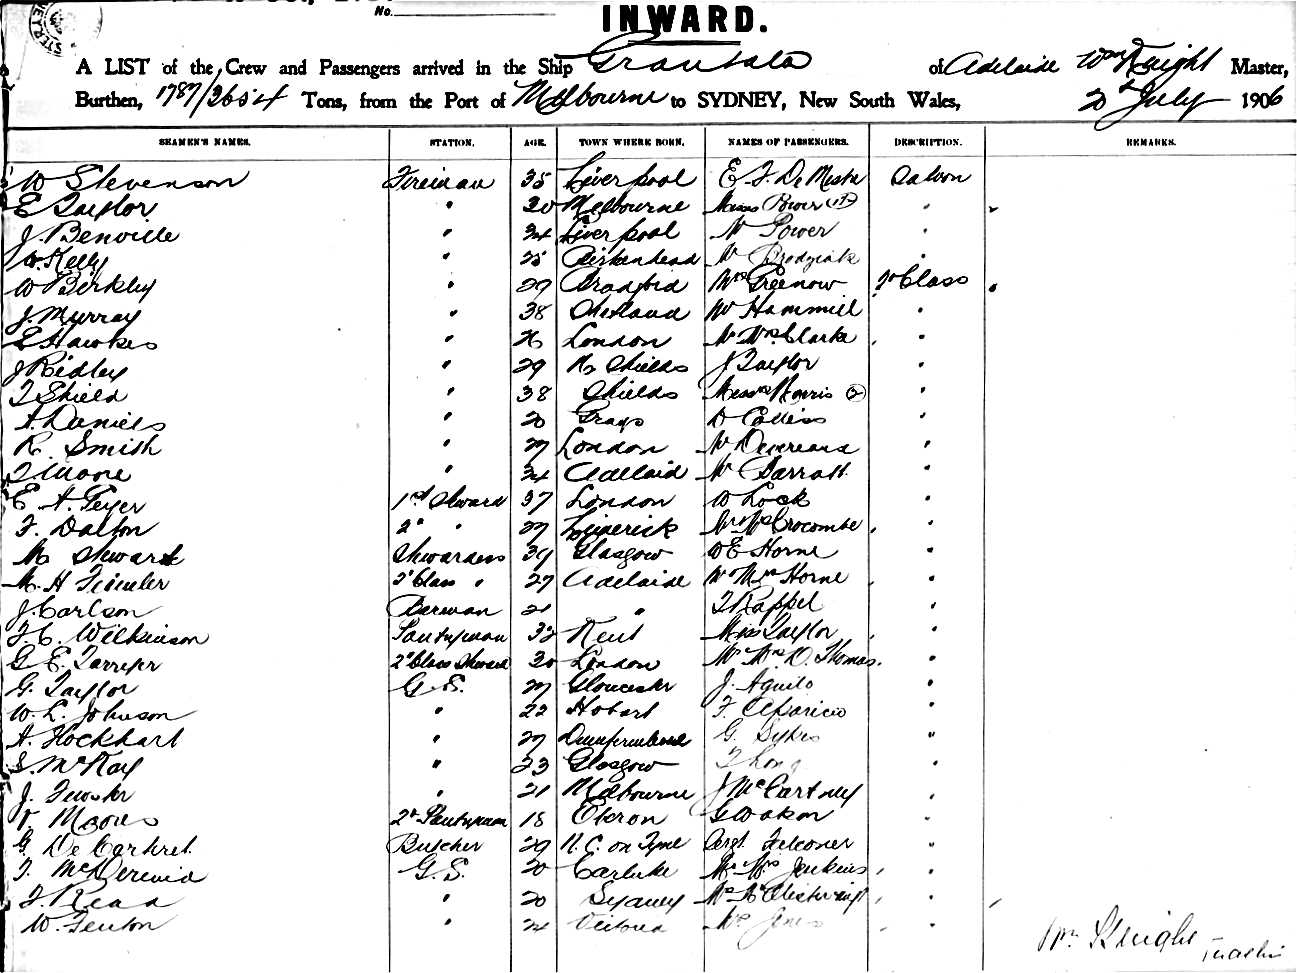 No.
INWARD.
A LIST of the Crew and Passengers arrived in the Ship Grantala of Adelaide Wm Knight Master,
Burthen, 1787/3654 Tons, from the Port of Melbourne to SYDNEY, New South Wales, 20th July 1906
SEAMEN'S NAMES. STATION. AGE. TOWN WHERE BORN. NAMES OF PASSENGERS. DESCRIPTION. REMARKS.
W Stevenson Fireman 35 Liverpool E F De Mestre Saloon
E Taylor " 20 Melbourne Misses Power "
J. Benville " 34 Liverpool Mr Power "
W. Kelly " 25 Birkenhead Mr Brodziak "
W Berkley " 29 Bradford Mrs Greenow 2nd Class
J. Murray " 38 Mr Hammill "
E Hawkes " 26 London Mr Mrs Clarke "
J Ridley " 29 N. Shields J Taylor "
T Shield " 38 Shields Norris (2) "
A. Daniels " 20 Grays D Collins "
R. Smith " 27 London Mr Devereaux "
T Moore " 34 Adelaid Mr Barratt "
E A. Geyer 1st Steward 37 London W Lock "
F. Dalton 2nd " 27 Limerick Mr Mrs Crocombe "
M Stewart Stewardess 39 Glasgow W E Horne "
M. H 2nd Class " 27 Adelaide Mr Mrs Horne "
J. Carlson Barman 21 " T Rappel "
H C. Wilkinson Pantryman 32 Kent Miss Taylor "
G E. 2nd Class Steward 30 London Mr Mrs D. Thomas "
G. Taylor G. S. 27 Gloucester J. Aguilo "
W. L. Johnson " 22 Hobart F. Aparicio "
A. Hockhart " 27 Dunfermline G. Sykes "
S. McKay " 23 Glasgow T Long "
J. " 21 Melbourne J McCartney "
V Moores 2nd Pantryman 18 G Watson "
G. De Carteret Butcher 29 N. C. on Tyne Falconer "
T. McDermid G. S. 20 Carluke Mr Mrs Jenkins "
F. Read " 20 Sydney Mr "
W. Fenton " 24 Victoria Mr Jones "
Wm Knight
Master